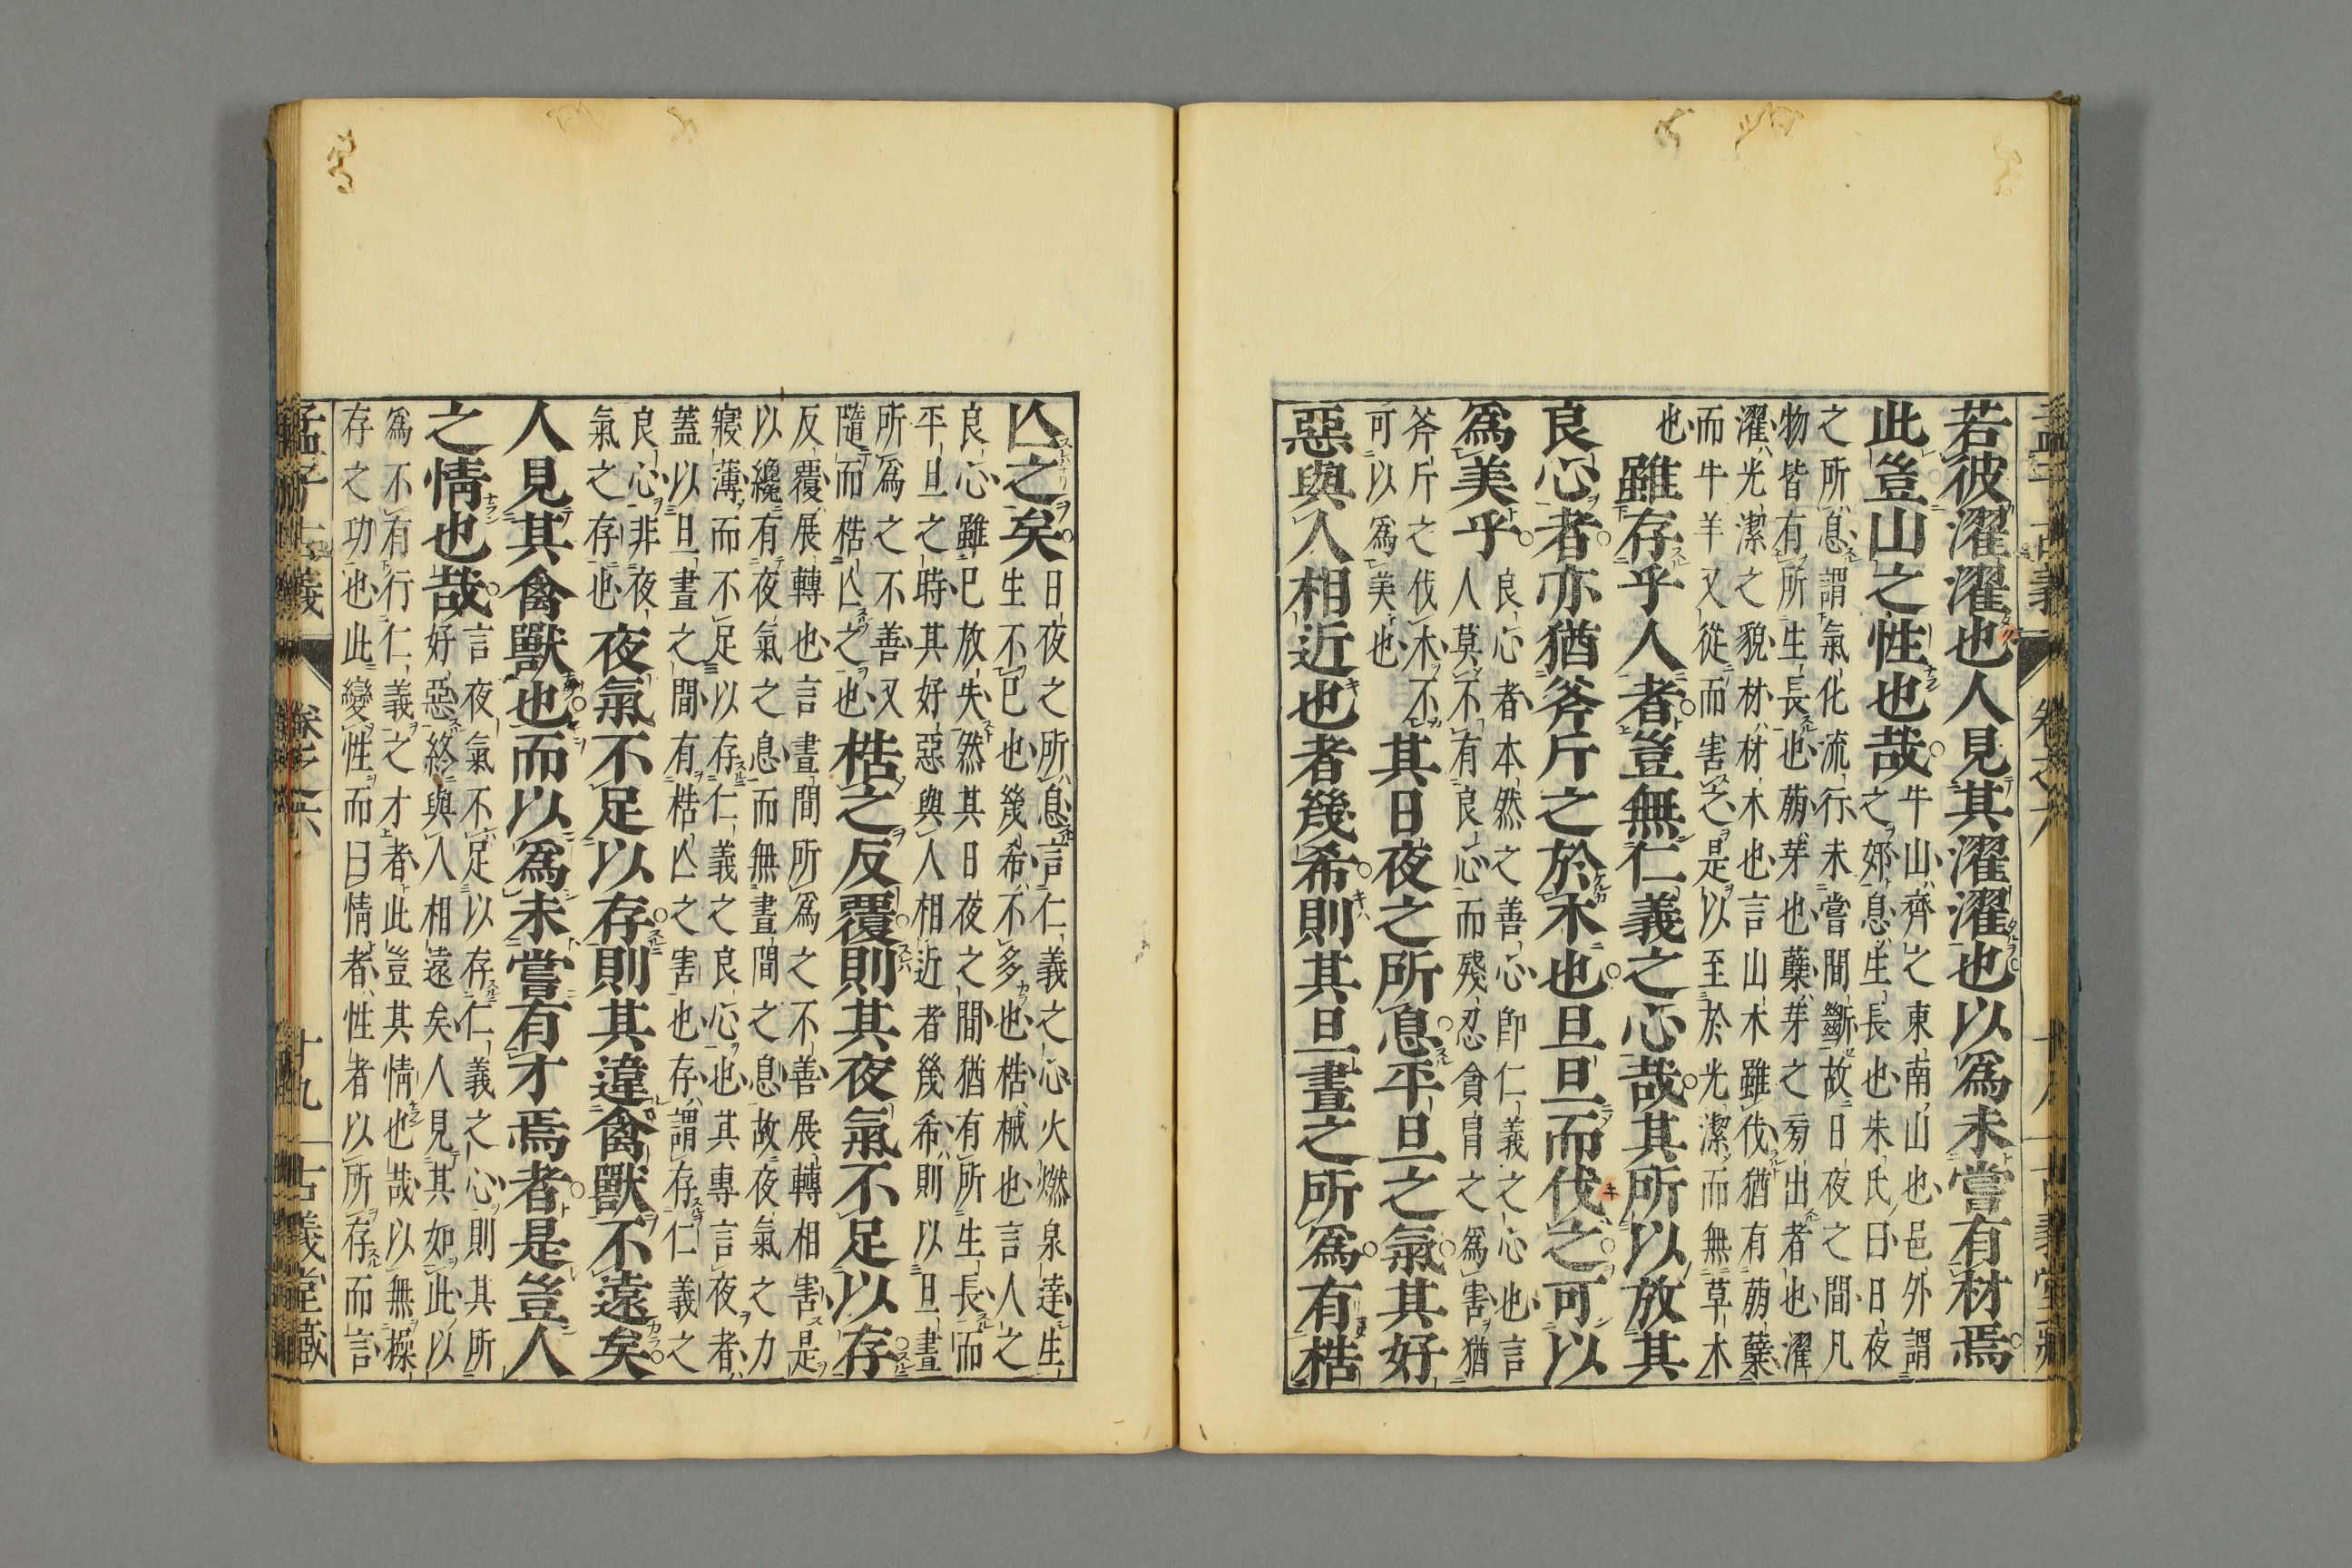 若彼濯濯也人見其濯濯也以爲未嘗有材焉
此豈山之性也哉
牛山齊之東南山也邑外謂
之郊息生長也朱氏曰日夜
之所息謂氣化流行未嘗間斷故日夜之間凡
物皆有所生長也萠芽也蘖芽之旁出者也濯
濯光潔之貌材材木也言山木雖伐猶有萠蘖
而牛羊又從而害之是以至於光潔而無草木
也
雖存乎人者豈無仁義之心哉其所以放其
良心者亦猶斧斤之於木也旦旦而伐之可以
爲美乎
良心者本然之善心卽仁義之心也言
人莫不有良心而殘忍貪冐之爲害猶
斧斤之伐木不
可以爲美也
其日夜之所息平旦之氣其好
惡與人相近也者幾希則其旦晝之所爲有梏
亾之矣
日夜之所息言仁義之心火燃泉達生
生不已也幾希不多也梏械也言人之
良心雖已放失然其日夜之間猶有所生長而
平旦之時其好惡與人相近者幾希則以旦晝
所爲之不善又
隨而梏亾之也
梏之反覆則其夜氣不足以存
反覆展轉也言晝間所爲之不善展轉相害是
以纔有夜氣之息而無晝間之息故夜氣之力
寢薄而不足以存仁義之良心也其專言夜者
蓋以旦晝之間有梏亾之害也存謂存仁義之
良心非夜
氣之存也
夜氣不足以存則其違禽獸不遠矣
人見其禽獸也而以爲未嘗有才焉者是豈人
之情也哉
言夜氣不足以存仁義之心則其所
好惡終與人相遠矣人見其如此以
爲不有行仁義之才者此豈其情也哉以無操
存之功也此變性而曰情者性者以所存而言
孟子古義 卷之六 十九 古義堂藏